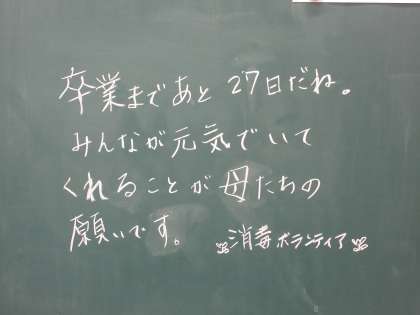 卒業まであと27日だね。
みんなが元気でいて
くれることが母たちの
願いです。
消毒ボランティア